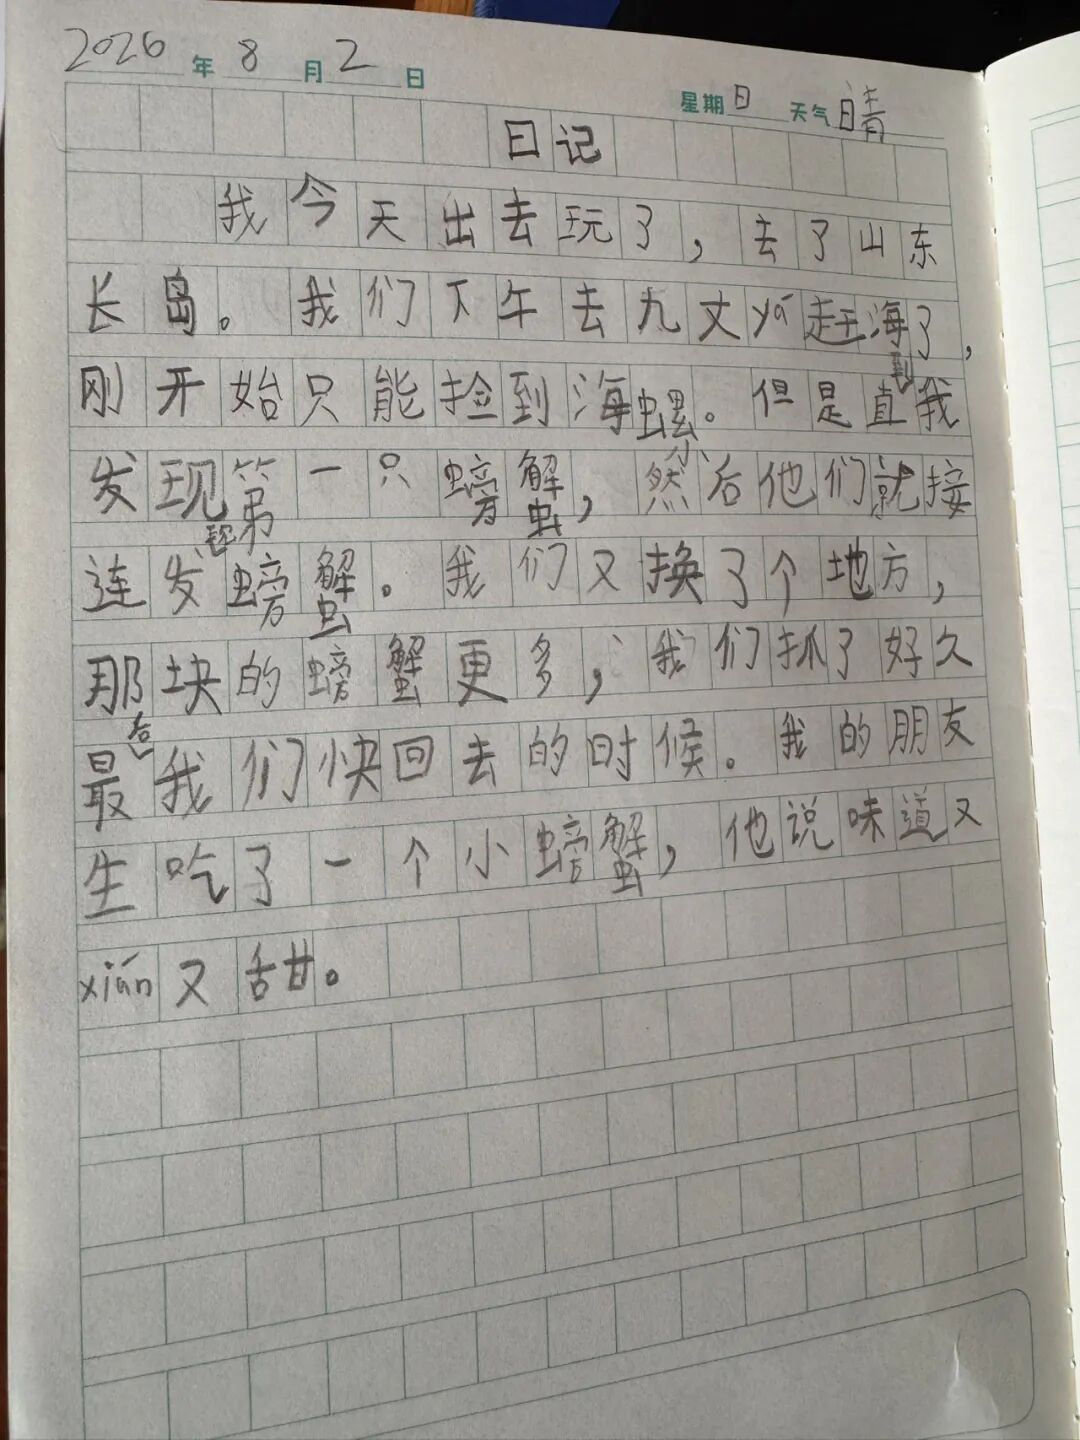 2026年8月2日 星期日 天气晴
日记
我今天出去玩了，去了山东
长岛。我们下午去九丈yá赶海了，
刚开始只能捡到海螺。但是直到我
发现第一只小螃蟹，然后他们就接
连发现螃蟹。我们又换了个地方，
那块的螃蟹更多，我们抓了好久
最后我们快回去的时候。我的朋友
生吃了一个小螃蟹，他说味道又
xián又甜。